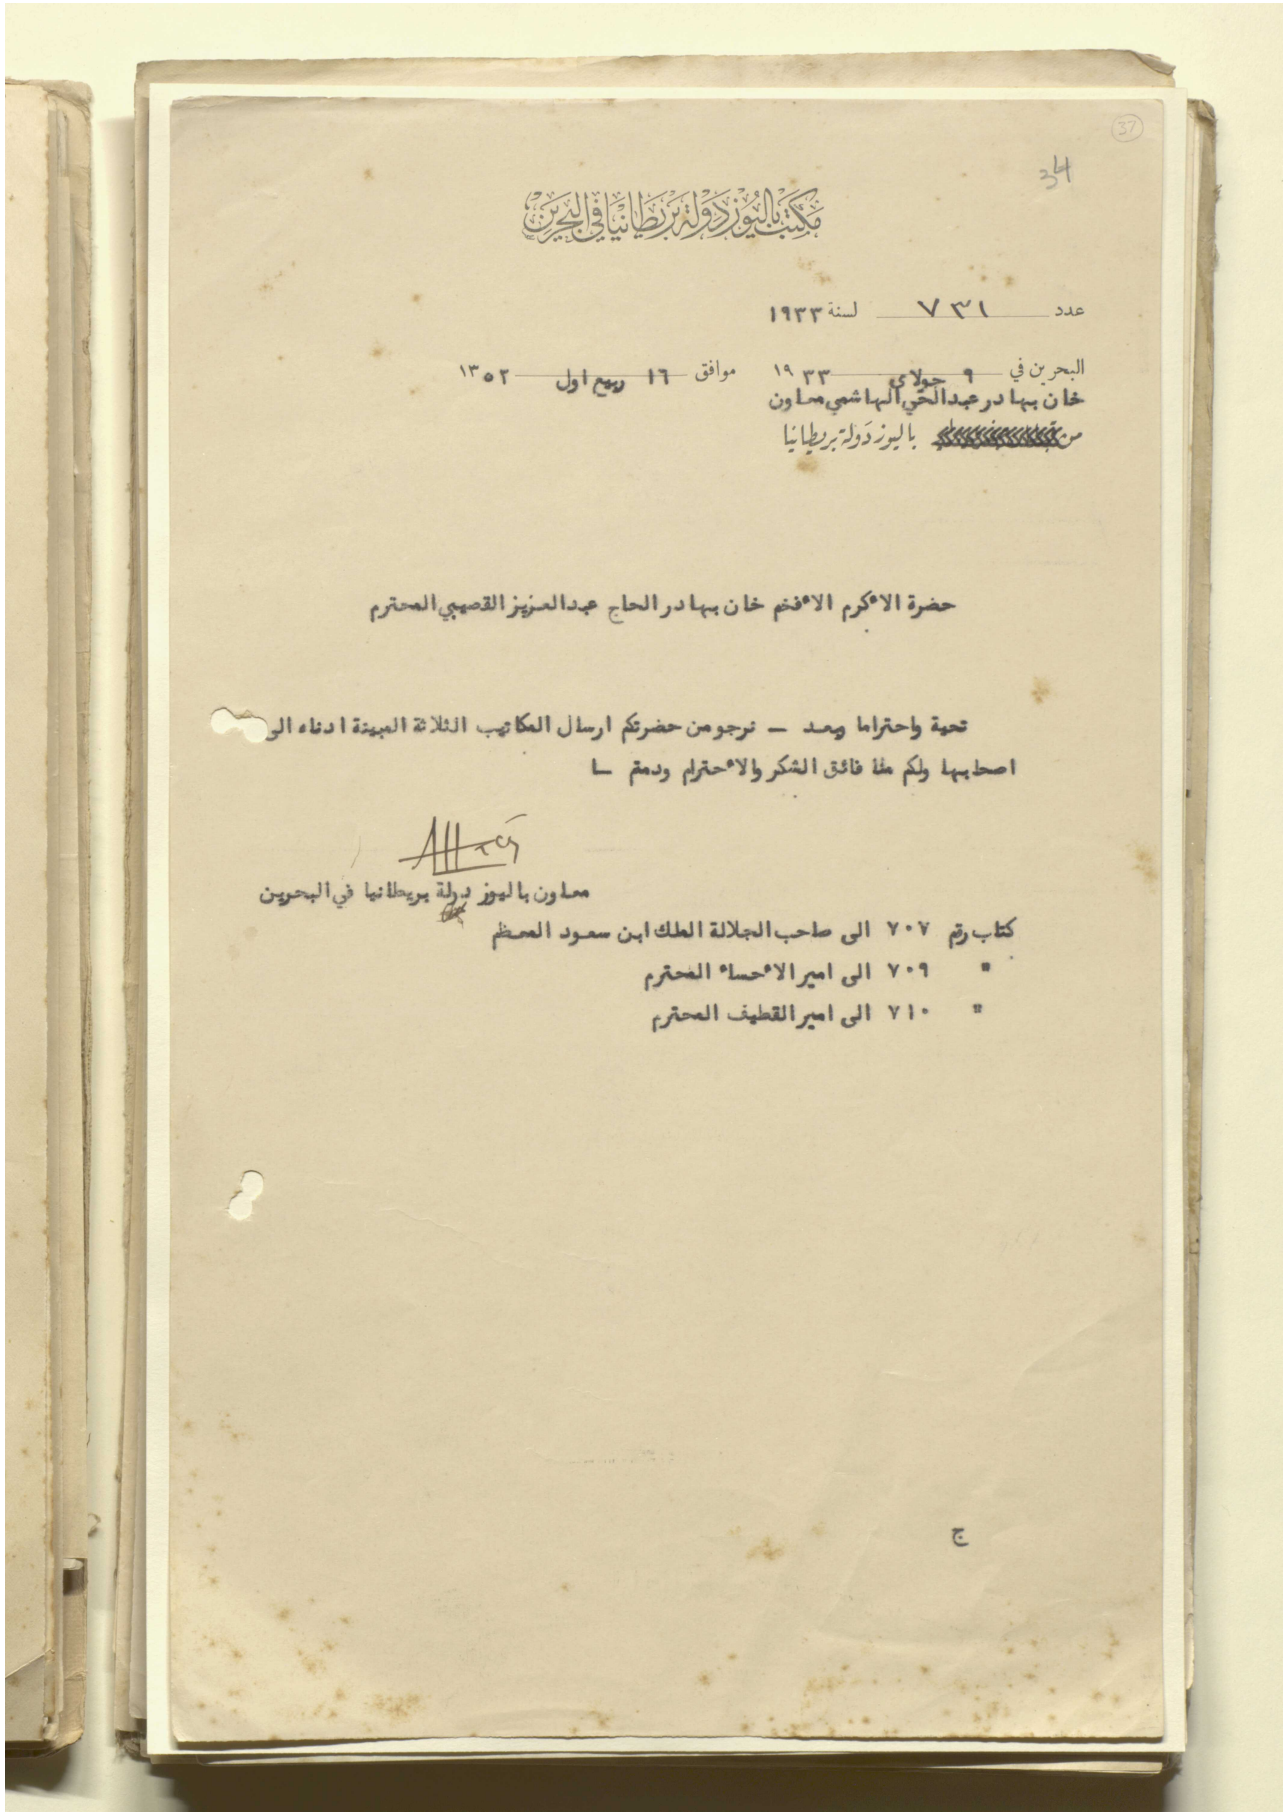 37
34
مكتب باليوز دولة بريطانيا في البحرين
عدد ٧٣١ لسنة ١٩٣٣
البحرين في ٩ جولاي ١٩٣٣ موافق ١٦ ربيع اول ١٣٥٢
خان بهادر عبدالحي الهاشمي معاون
من باليوز دولة بريطانيا
حضرة الاءكرم الاءفخم خان بهادر الحاج عبدالعزيز القصيبي المحترم
تحية واحتراما وبعد _ نرجو من حضرتكم ارسال المكاتيب الثلاثة المبينة ادناه الى
اصحابها ولكم منا فائق الشكر والاءحترام ودمتم
معاون باليوز دولة بريطانيا في البحرين
كتاب رقم ٧٠٧ الى صاحب الجلالة الملك ابن سعود المعظم
" ٧٠٩ الى امير الاءحساء المحترم
" ٧١٠ الى امير القطيف المحترم
ج